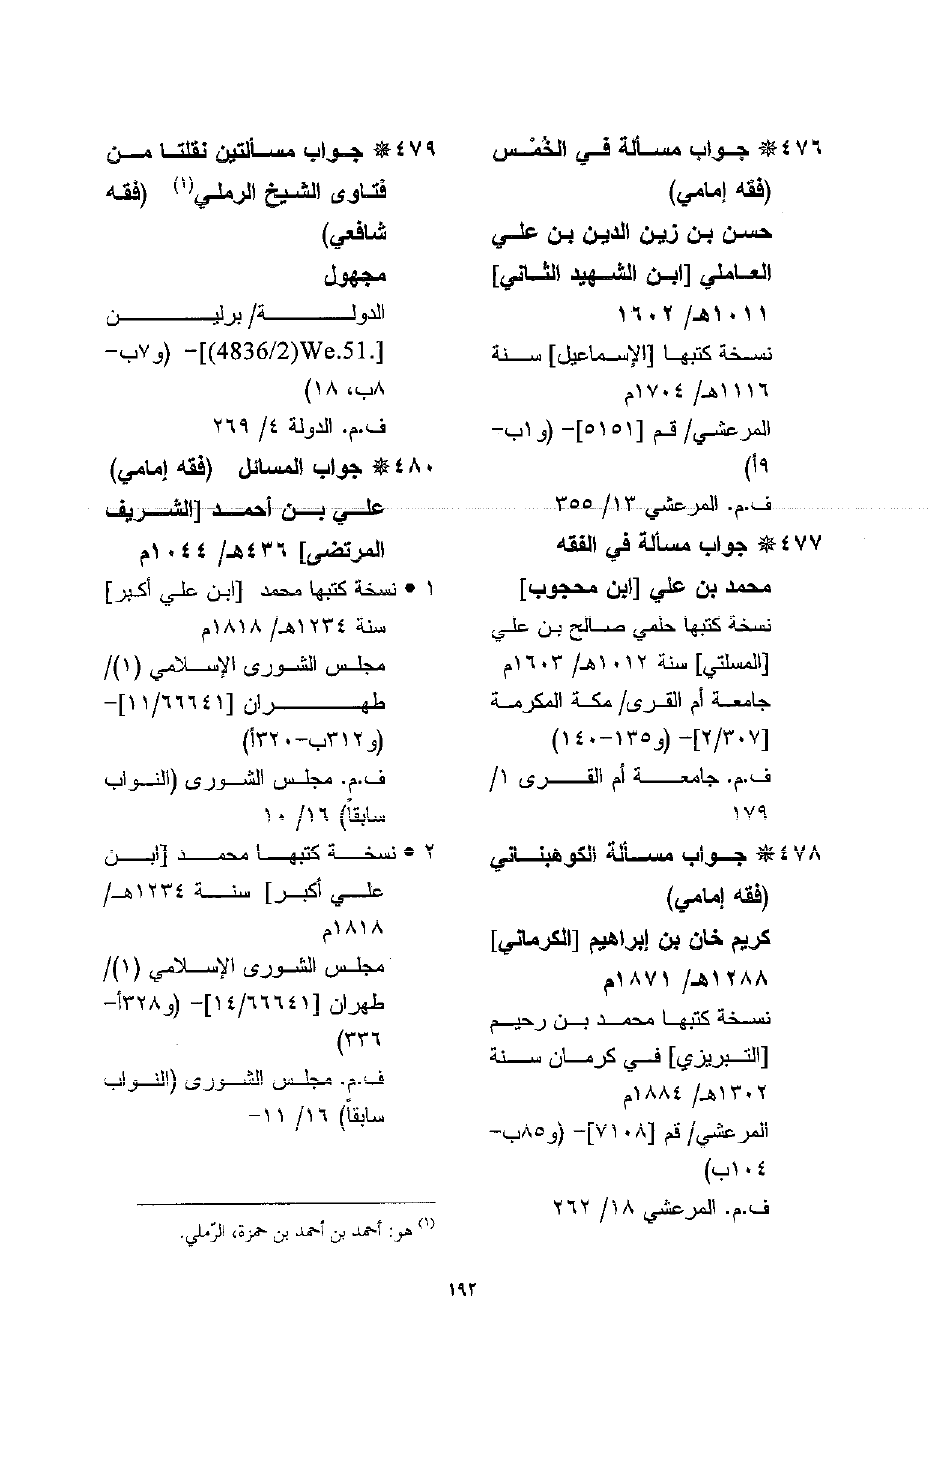 ٤٧٦* جـواب مسـألة فـي الخُمْـس
(فقه إمامي)
حسن بن زين الدين بن علي
العـاملي [ابـن الشـهيد الثـاني]
١٠١١هـ/ ١٦٠٢
نسـخة كتبهـا [الإسـماعيل] سـنة
١١١٦هـ/ ١٧٠٤م
المرعشـي/ قـم [٥١٥١]- (و١ب-
٩أ)
ف.م. المرعشي ١٣/ ٣٥٥
٤٧٧* جواب مسألة في الفقه
محمد بن علي [ابن محجوب]
نسخة كتبها حلمي صـالح بـن علي
[المسلتي] سنة ١٠١٢هـ/ ١٦٠٣م
جامعـة أم القـرى/ مكـة المكرمـة
[٢/٣٠٧]- (و١٣٥-١٤٠)
ف.م. جامعــة أم القــرى ١/
١٧٩
٤٧٨* جـواب مسـألة الكوهبنـاني
(فقه إمامي)
كريم خان بن إبراهيم [الكرماني]
١٢٨٨هـ/ ١٨٧١م
نسـخة كتبهـا محمـد بـن رحيـم
[التـبريزي] فـي كرمـان سـنة
١٣٠٢هـ/ ١٨٨٤م
المرعشي/ قم [٧١٠٨]- (و٨٥ب-
١٠٤ب)
ف.م. المرعشي ١٨/ ٢٦٢
٤٧٩* جـواب مسـألتين نقلتـا مـن
فتـاوى الشـيخ الرملي(١) (فقـه
شافعي)
مجهول
الدولـــة/ برليـــن
[.We.51(4836/2)]- (و٧ب-
٨ب، ١٨)
ف.م. الدولة ٤/ ٢٦٩
٤٨٠* جواب المسائل (فقه إمامي)
علـي بـن أحمـد [الشـريف
المرتضى] ٤٣٦هـ/ ١٠٤٤م
١ • نسخة كتبها محمد [ابـن علـي أكبر]
سنة ١٢٣٤هـ/ ١٨١٨م
مجلـس الشـورى الإسـلامي (١)/
طهــــران [١١/٦٦٦٤١]-
(و٣١٢ب-٣٢٠أ)
ف.م. مجلـس الشـورى (النـواب
سابقاً) ١٦/ ١٠
٢ • نسـخـة كتبهـا محمـد [ابـن
علـي أكبـر] سـنة ١٢٣٤هـ/
١٨١٨م
مجلـس الشـورى الإسـلامي (١)/
طهران [١٤/٦٦٦٤١]- (و٣٢٨أ-
٣٣٦)
ف.م. مجلـس الشـورى (النـواب
سابقاً) ١٦/ ١١-
(١) هو: أحمد بن أحمد بن حمزة، الرّملي.
١٩٢